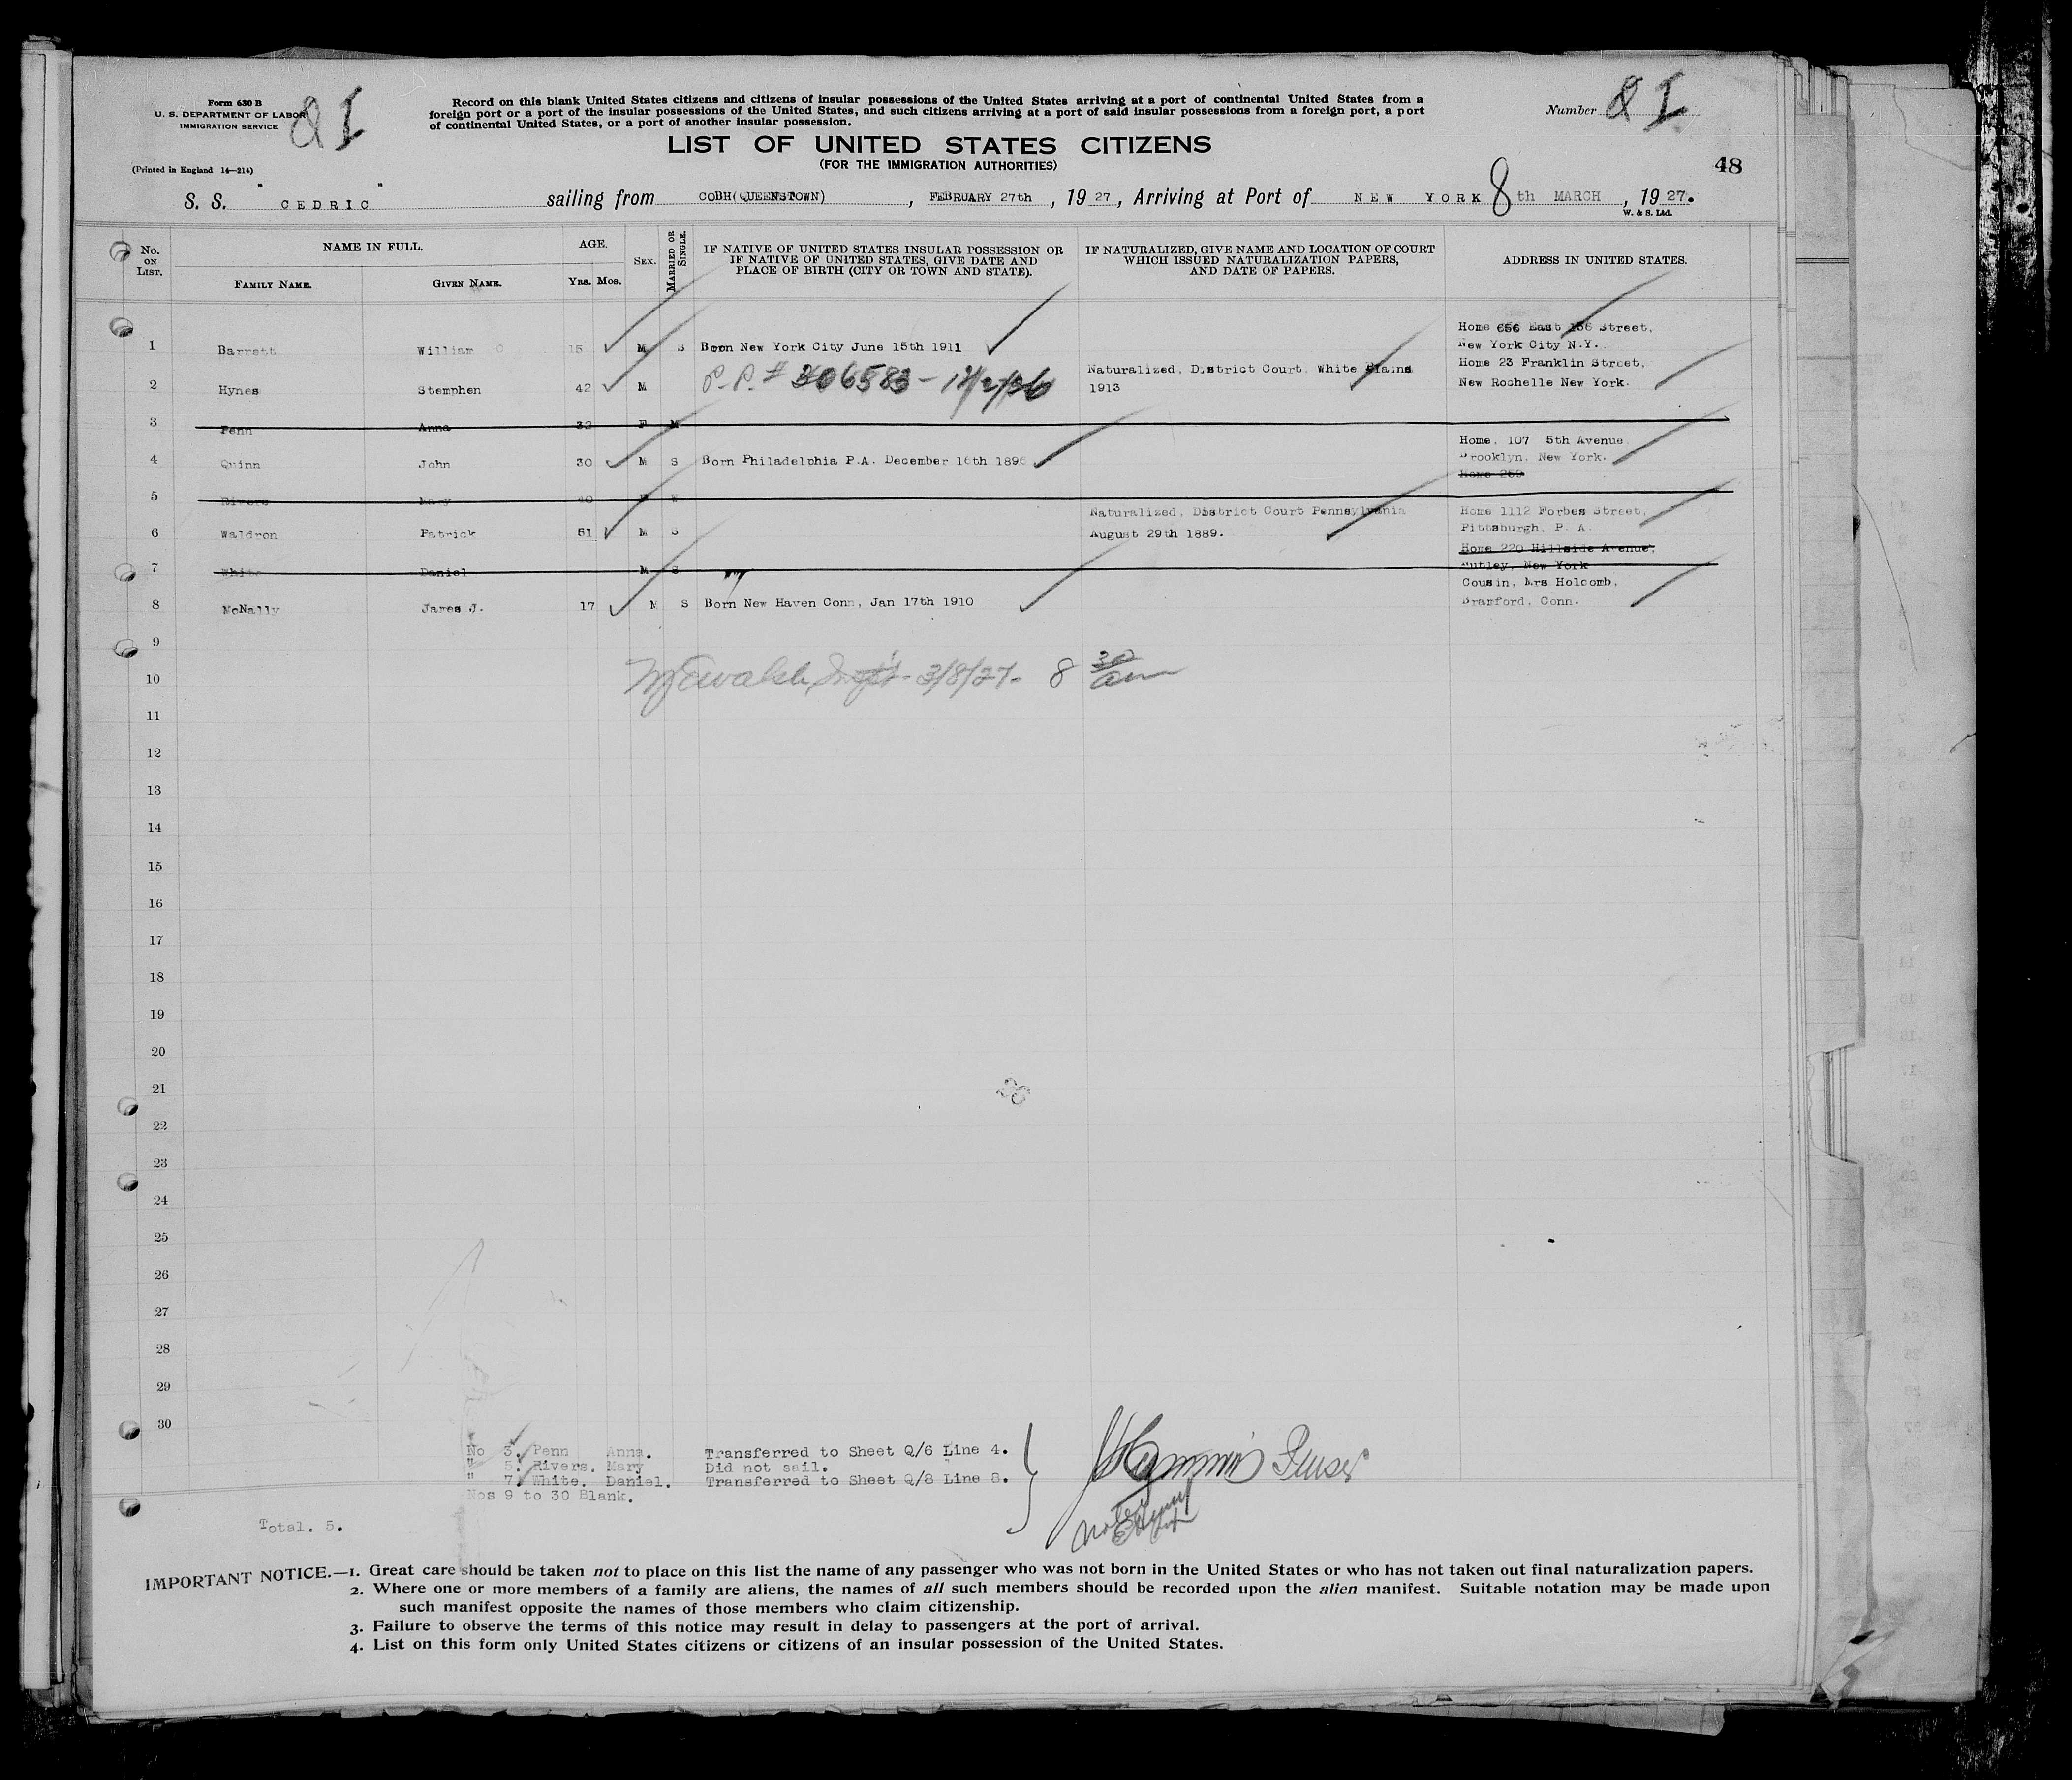 Form 630 B
U. S. DEPARTMENT OF LABOR
IMMIGRATION SERVICE
(Printed in England 14—214)
Q I
Record on this blank United States citizens and citizens of insular possessions of the United States arriving at a port of continental United States from a
foreign port or a port of the insular possessions of the United States, and such citizens arriving at a port of said insular possessions from a foreign port, a port
of continental United States, or a port of another insular possession.
Number Q I
LIST OF UNITED STATES CITIZENS
(FOR THE IMMIGRATION AUTHORITIES)
48
S. S. "CEDRIC" sailing from COBH(QUEENSTOWN), FEBRUARY 27th, 1927, Arriving at Port of NEW YORK 8th MARCH, 1927.
W. & S. Ltd.
No. ON LIST.
NAME IN FULL.
FAMILY NAME.
GIVEN NAME.
AGE.
YRS. MOS.
SEX.
MARRIED OR SINGLE.
IF NATIVE OF UNITED STATES INSULAR POSSESSION OR
IF NATIVE OF UNITED STATES, GIVE DATE AND
PLACE OF BIRTH (CITY OR TOWN AND STATE).
IF NATURALIZED, GIVE NAME AND LOCATION OF COURT
WHICH ISSUED NATURALIZATION PAPERS,
AND DATE OF PAPERS.
ADDRESS IN UNITED STATES.
Home 656 East 156 Street,
1 Barrett William O 15 M S Born New York City June 15th 1911 New York City N.Y.
Naturalized, District Court White Plains Home 23 Franklin Street,
2 Hynes Stemphen 42 M P.P. # 306583 - 1913 New Rochelle New York.
3 Penn Anna 32 F M
Home, 107 5th Avenue
4 Quinn John 30 M S Born Philadelphia P.A. December 16th 1896 Brooklyn, New York.
Home 259
5 Rivers Mary 40 F W
Naturalized, District Court Pennsylvania Home 1112 Forbes Street,
6 Waldron Patrick 61 M S August 29th 1889. Pittsburgh, P. A.
Home 220 Hillside Avenue,
7 White Daniel M S Nutley, New York
Cousin, Mrs Holcomb,
8 McNally James J. 17 M S Born New Haven Conn, Jan 17th 1910 Branford, Conn.
9
10 3/8/27- 8 30 am
11
12
13
14
15
16
17
18
19
20
21
22
23
24
25
26
27
28
29
30
No 3. Penn Anna. Transferred to Sheet Q/6 Line 4.
" 5. Rivers. Mary Did not sail.
" 7. White. Daniel. Transferred to Sheet Q/8 Line 8.
Nos 9 to 30 Blank.
Total. 5.
IMPORTANT NOTICE.—1. Great care should be taken not to place on this list the name of any passenger who was not born in the United States or who has not taken out final naturalization papers.
2. Where one or more members of a family are aliens, the names of all such members should be recorded upon the alien manifest. Suitable notation may be made upon
such manifest opposite the names of those members who claim citizenship.
3. Failure to observe the terms of this notice may result in delay to passengers at the port of arrival.
4. List on this form only United States citizens or citizens of an insular possession of the United States.